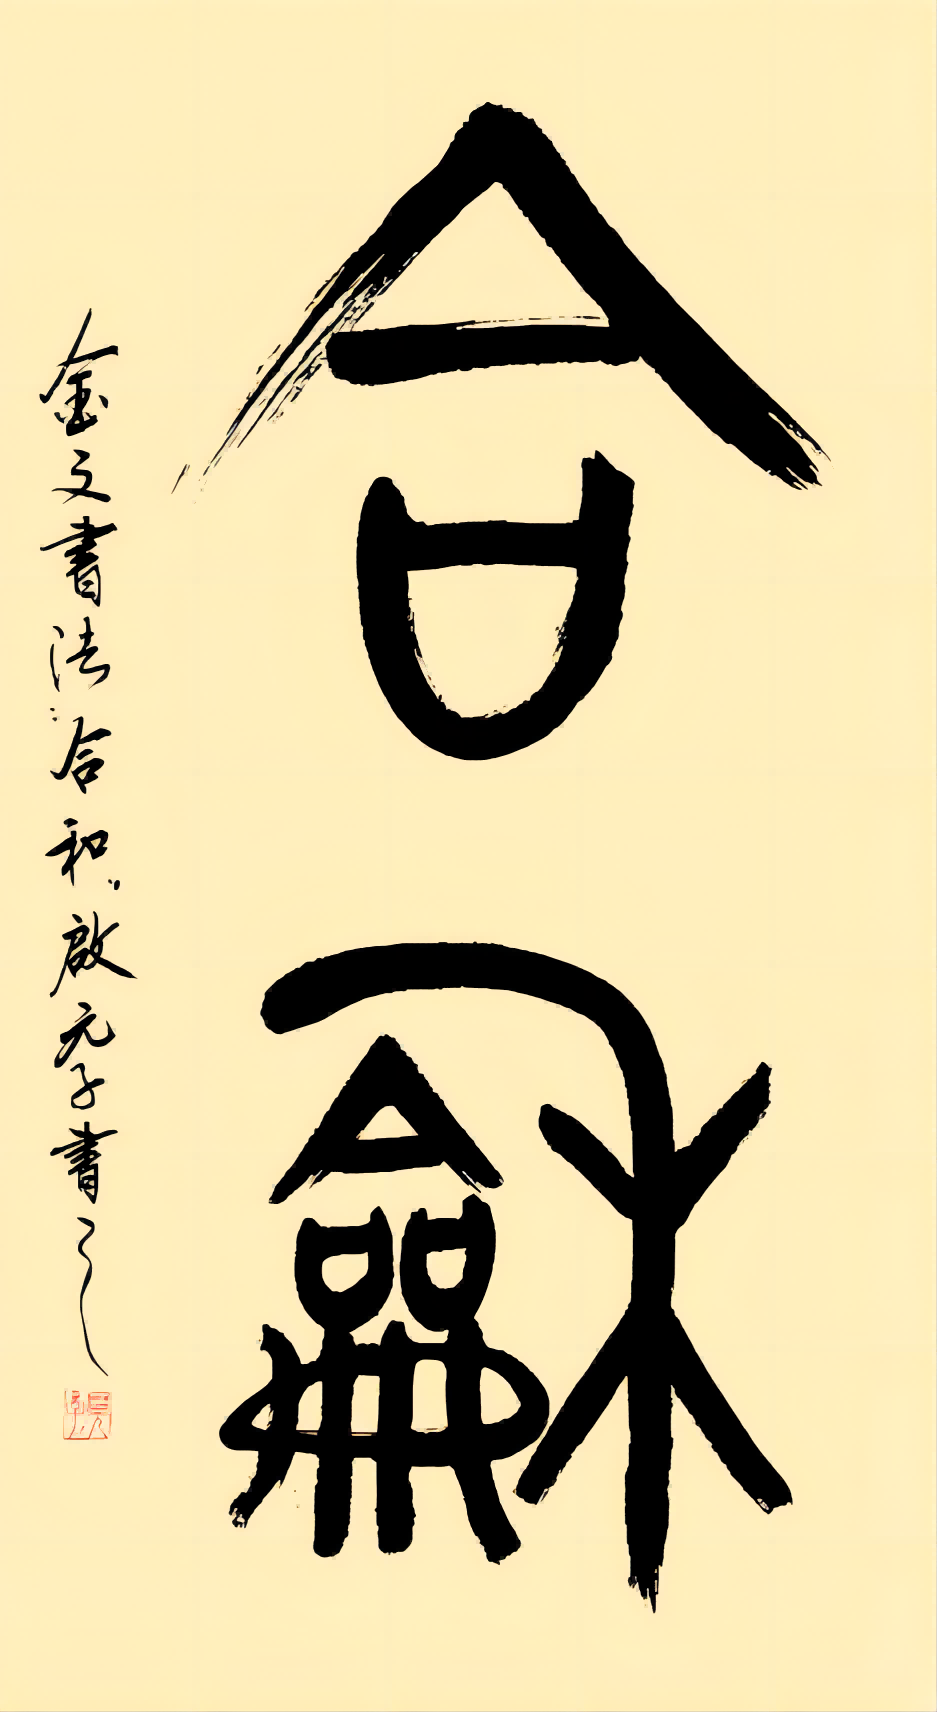 合龢
金文書法:合和"啟元子書之